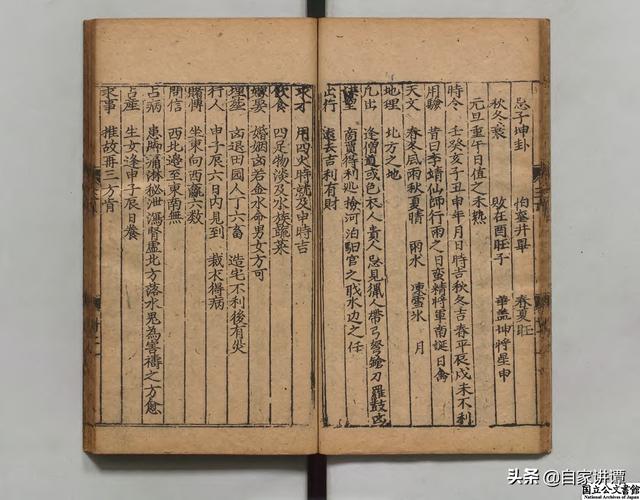 忌子坤卦 怕壁井畢 春夏旺
秋冬衰 敗在酉旺子 華盖坤将星申
元旦重午日值之未熟
時令 壬癸亥子丑申年月日時吉秋冬吉春平辰戌未不利
用驗 昔日李靖仙師行雨之日蛮精将軍南誕日禽
天文 春冬風雨秋夏晴 雨水 凍雪氷 月
地理 北方之地
凡出 逢僧道或色衣人貴人忌見猟人帶弓弩鎗刀羅鼓凶
商賈得利処撿河泊馹官之戝水边之任
出行 遠去吉利有財
求才 用四火時就及申時吉
飲食 四足物淡及水族蔬菜
嫁娶 婚姻凶若金水命男女方可
埋塟 凶退田國人丁六畜 造宅不利後有災
行人 申子辰六日內見到 裁衣得病
賭愽 坐東向西贏六数
問信 西北過至東南無
占病 患脚湧淋秘泄瀉腎虛北方落水鬼為害禱之方愈
占產 生女逢申子辰日養
求事 推故再三方肯
头条 @自家讲谭
国立公文書館